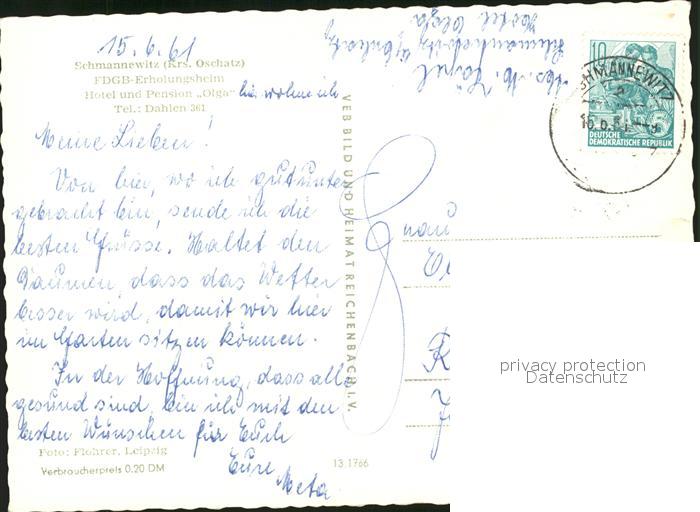 15.6.61
Schmannewitz (Krs. Oschatz)
FDGB-Erholungsheim
Hotel und Pension „Olga" hier wohne ich
Tel.: Dahlen 361
Meine Lieben!
Von hier, wo ich gut unter
gebracht bin, sende ich die
besten Grüsse. Haltet den
Daumen, dass das Wetter
besser wird, damit wir hier
im Garten sitzen können.
In der Hoffnung, dass alle
gesund sind, bin ich mit den
besten Wünschen für Euch
Eure
Meta
Foto: Flohrer, Leipzig
Verbraucherpreis 0.20 DM
13.1766
VEB BILD UND HEIMAT REICHENBACH I. V.
Abs. M.
Schmannewitz
Hotel Olga
10
5
DEUTSCHE
DEMOKRATISCHE REPUBLIK
SCHMANNEWITZ
Frau
privacy protection
Datenschutz